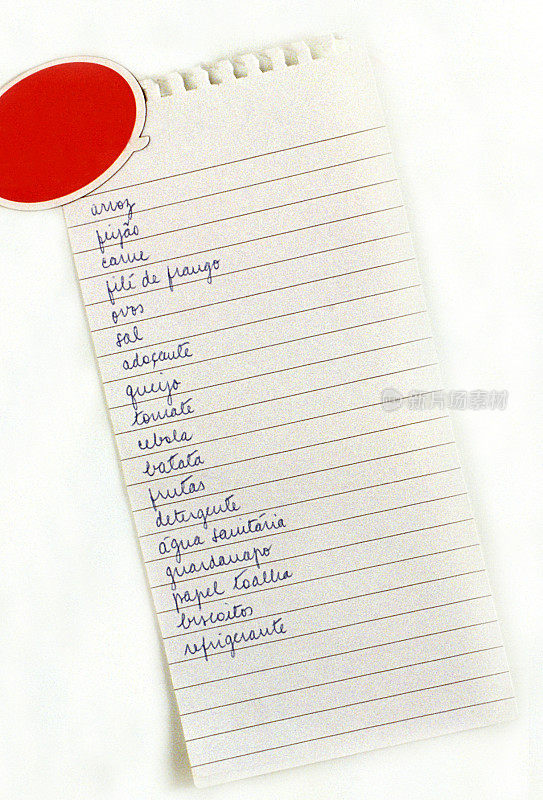 arroz
feijão
carne
filé de frango
ovos
sal
adoçante
queijo
tomate
cebola
batata
frutas
detergente
água sanitária
guardanapo
papel toalha
biscoitos
refrigerante
新片场素材